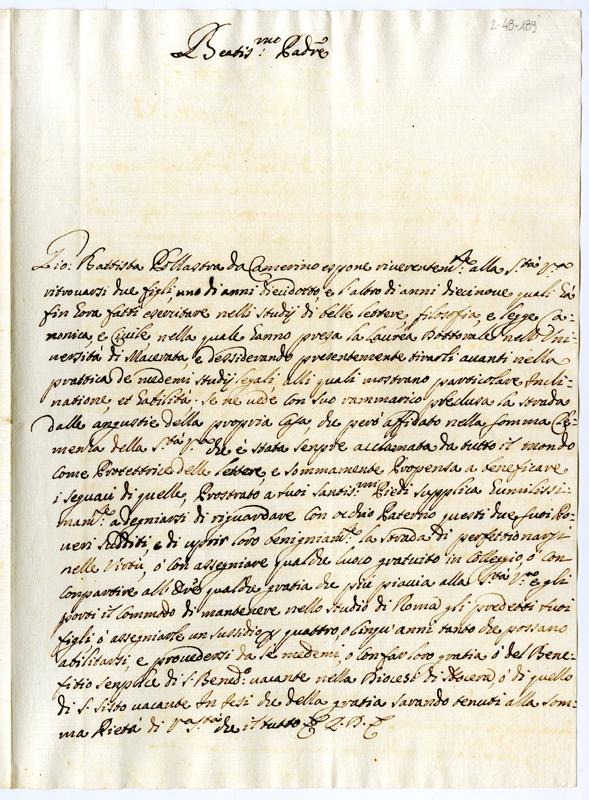 2-48-189
Beatis:mo Padre
Gio: Battista Pollastra da Camerino espone riverentem:te alla S:tà V:ra
ritrovarsi due figli, uno di anni dieciotto, e l'altro di anni diecinove quali hà
fin hora fatti esercitare nelli studij di belle lettere, filosofia, e legge Ca-
nonica, è Civile, nella quale hanno presa la Laurea Dottorale nell'Uni-
versità di Macerata, e dessiderando presentemente tirarli avanti nella
prattica de medemi studij legali, alli quali mostrano particolare Incli-
natione, et habilità. Se ne vede con suo rammarico preclusa la strada
dalle angustie della propria Casa, che però affidato nella somma Cle-
menza della S:tà V:ra che è stata senpre acclamata da tutto il mondo
come Protettrice delle lettere, e sommamente Propensa a beneficare
i seguaci di quelle, Prostrato a suoi santis:mi Piedi supplica humilissi-
mam:te a degniarsi di riguardare con occhio Paterno questi due suoi Po-
veri sudditi, e di aprir loro benigniam:te la strada di perfettionarsi
nelle Virtù, ò con assegniare qualche luoco gratuito in Collegio ò con
conpartire all' qualche gratia che più piaccia alla S:tà V:ra e gli
porti il commodo di mantenere nello studio di Roma gli predetti suoi
figli ò assegniarle un sussidio p quattro, o cinqu' anni tanto che possano
abilitarsi, e provedersi da se medemi, o con far loro gratia ò del Bene-
fitio senplice di S: Bened:o vacante nella Diocesi di Nocera, ò di quello
di S: Sisto vacante In Jesi che della gratia sarando tenuti alla som-
ma Pietà di V:ra S:tà che il tutto